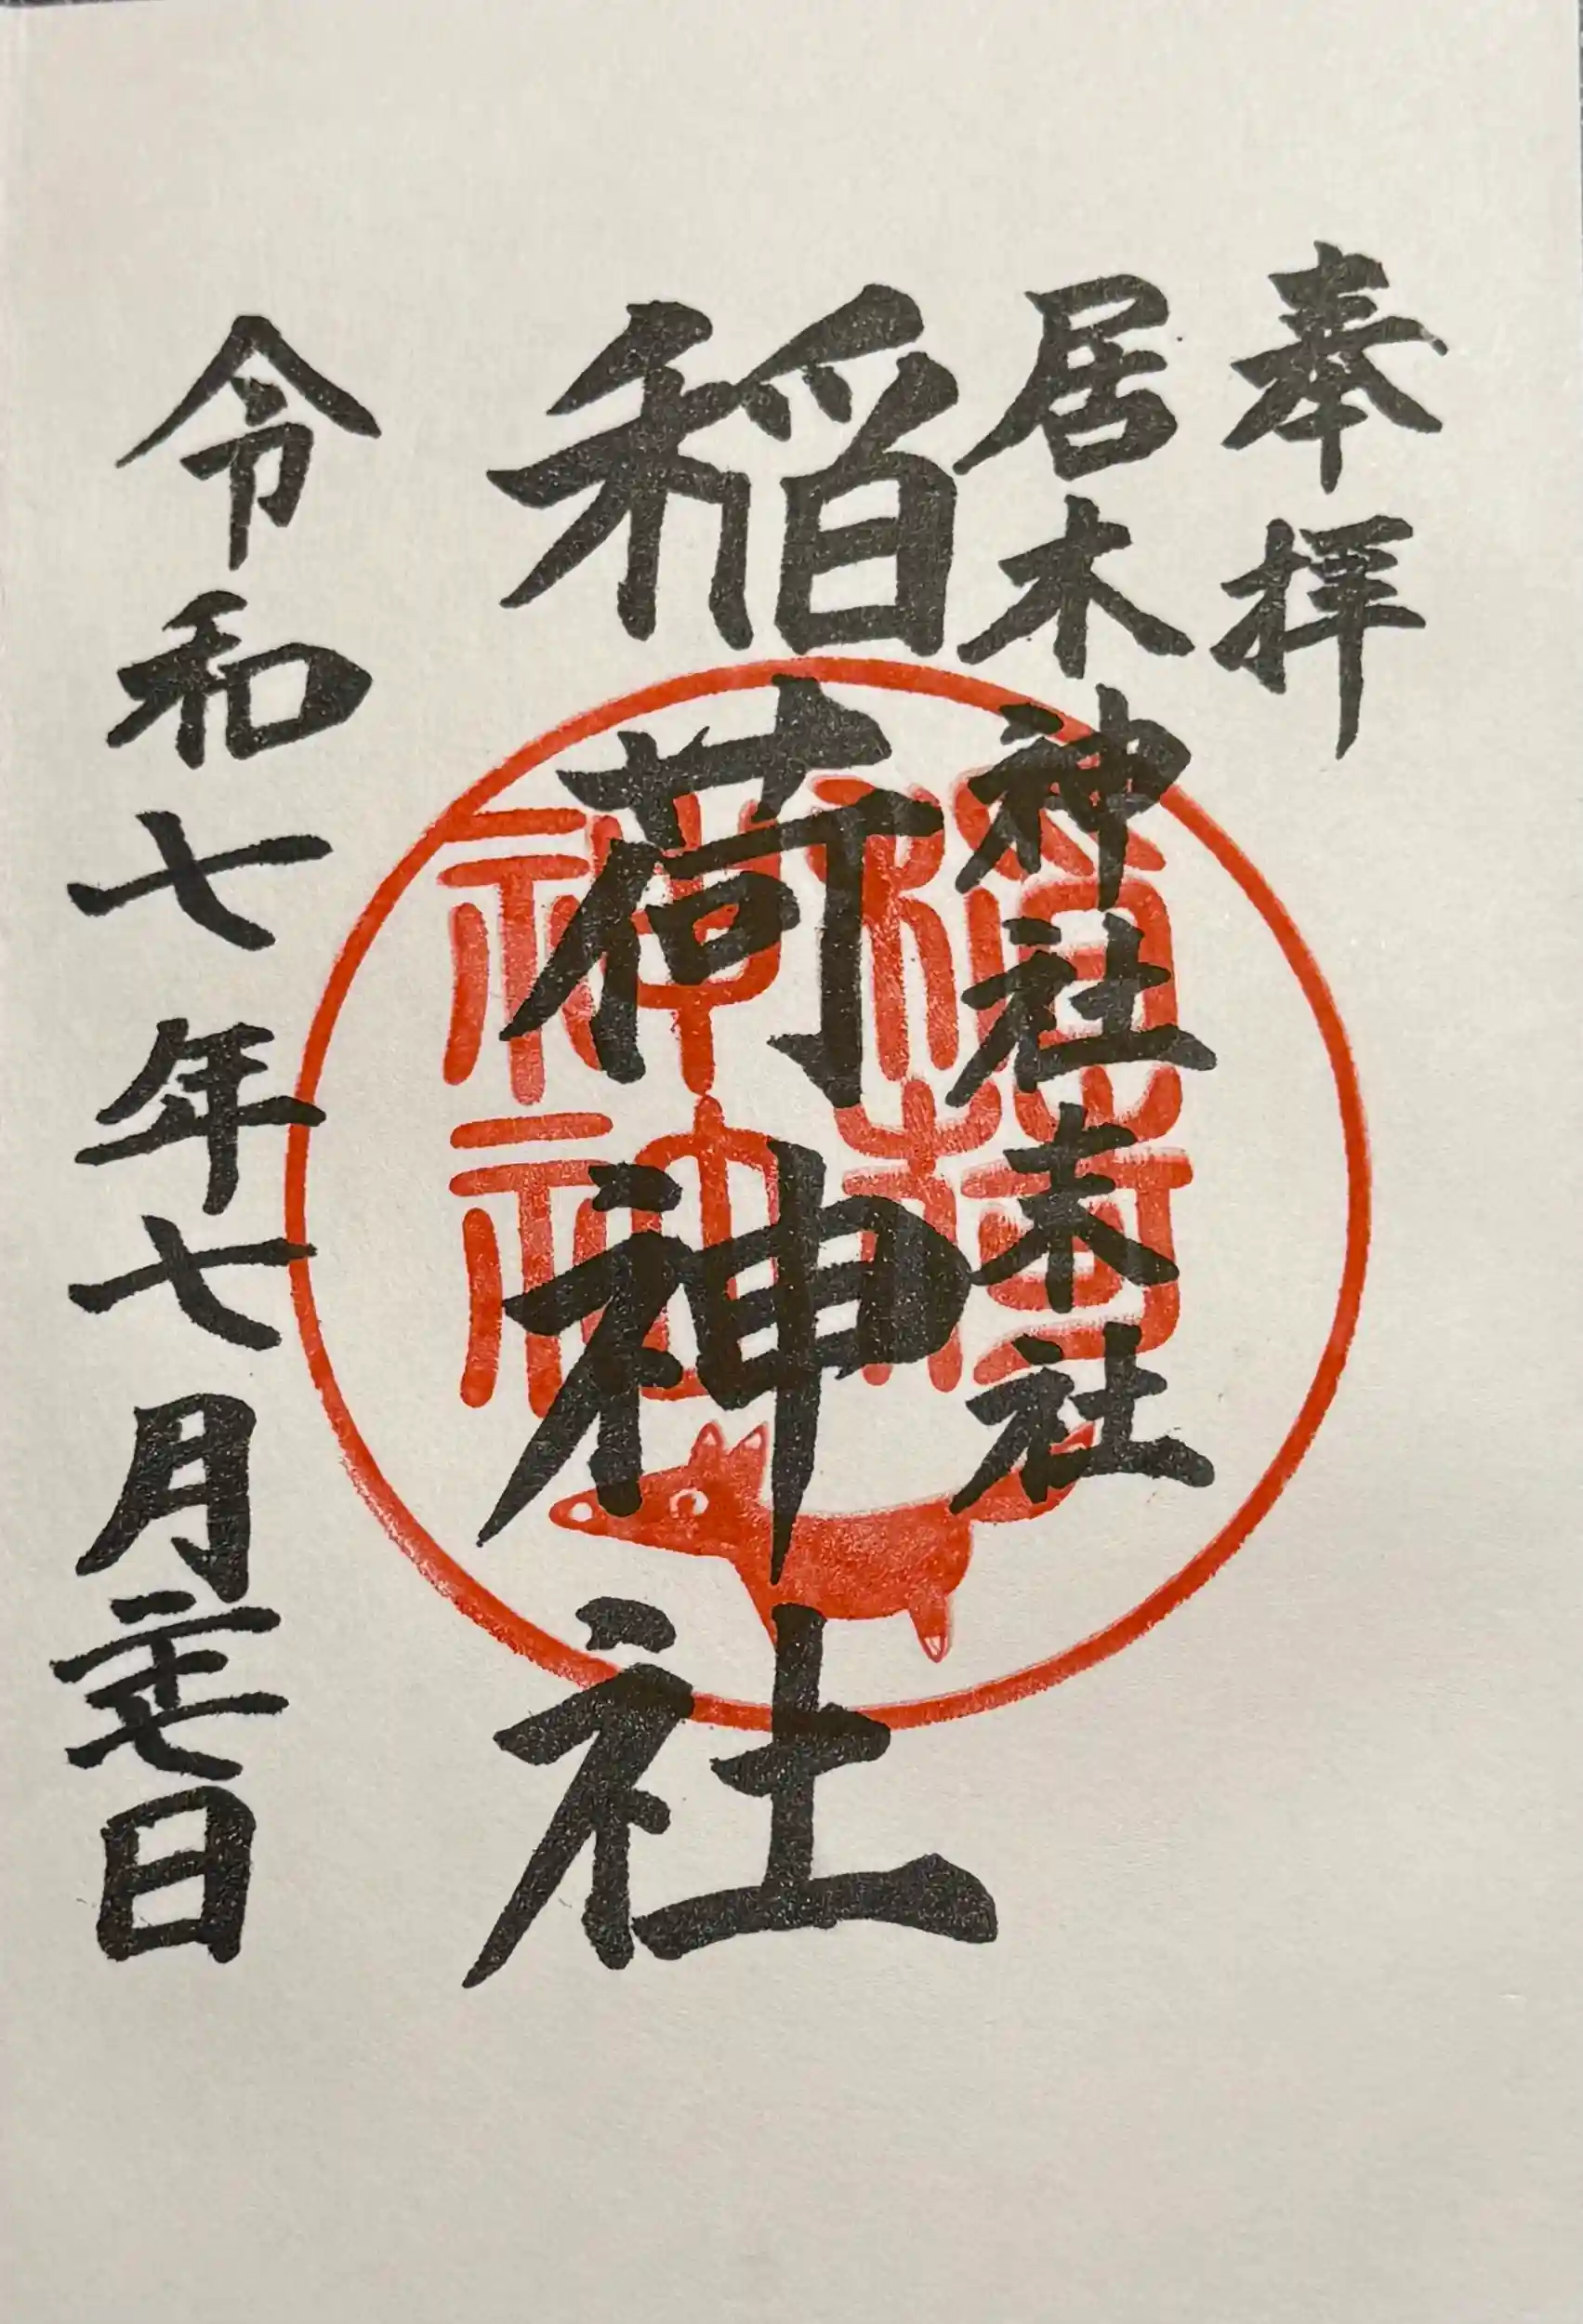 奉拝
居木神社末社
稲荷神社
令和七年七月二十七日
稲荷神社